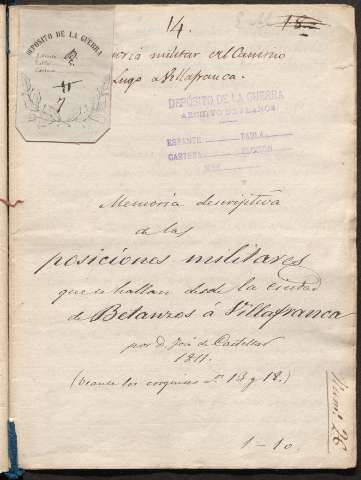 14.
182
DEPÓSITO DE LA GUERRA
7
militar del Camino
Lugo a Villafranca.
DEPÓSITO DE LA GUERRA
ARCHIVO DE PLANOS
ESTANTE TABLA
CARTERA SECCIÓN
Memoria descriptiva
de las
posiciones militares
que se hallan desde la ciudad
de Betanzos á Villafranca
por D. José de Castellar
1811.
(Veanse los croquises nº 13 y 18.)
1-10.
Núm. 26